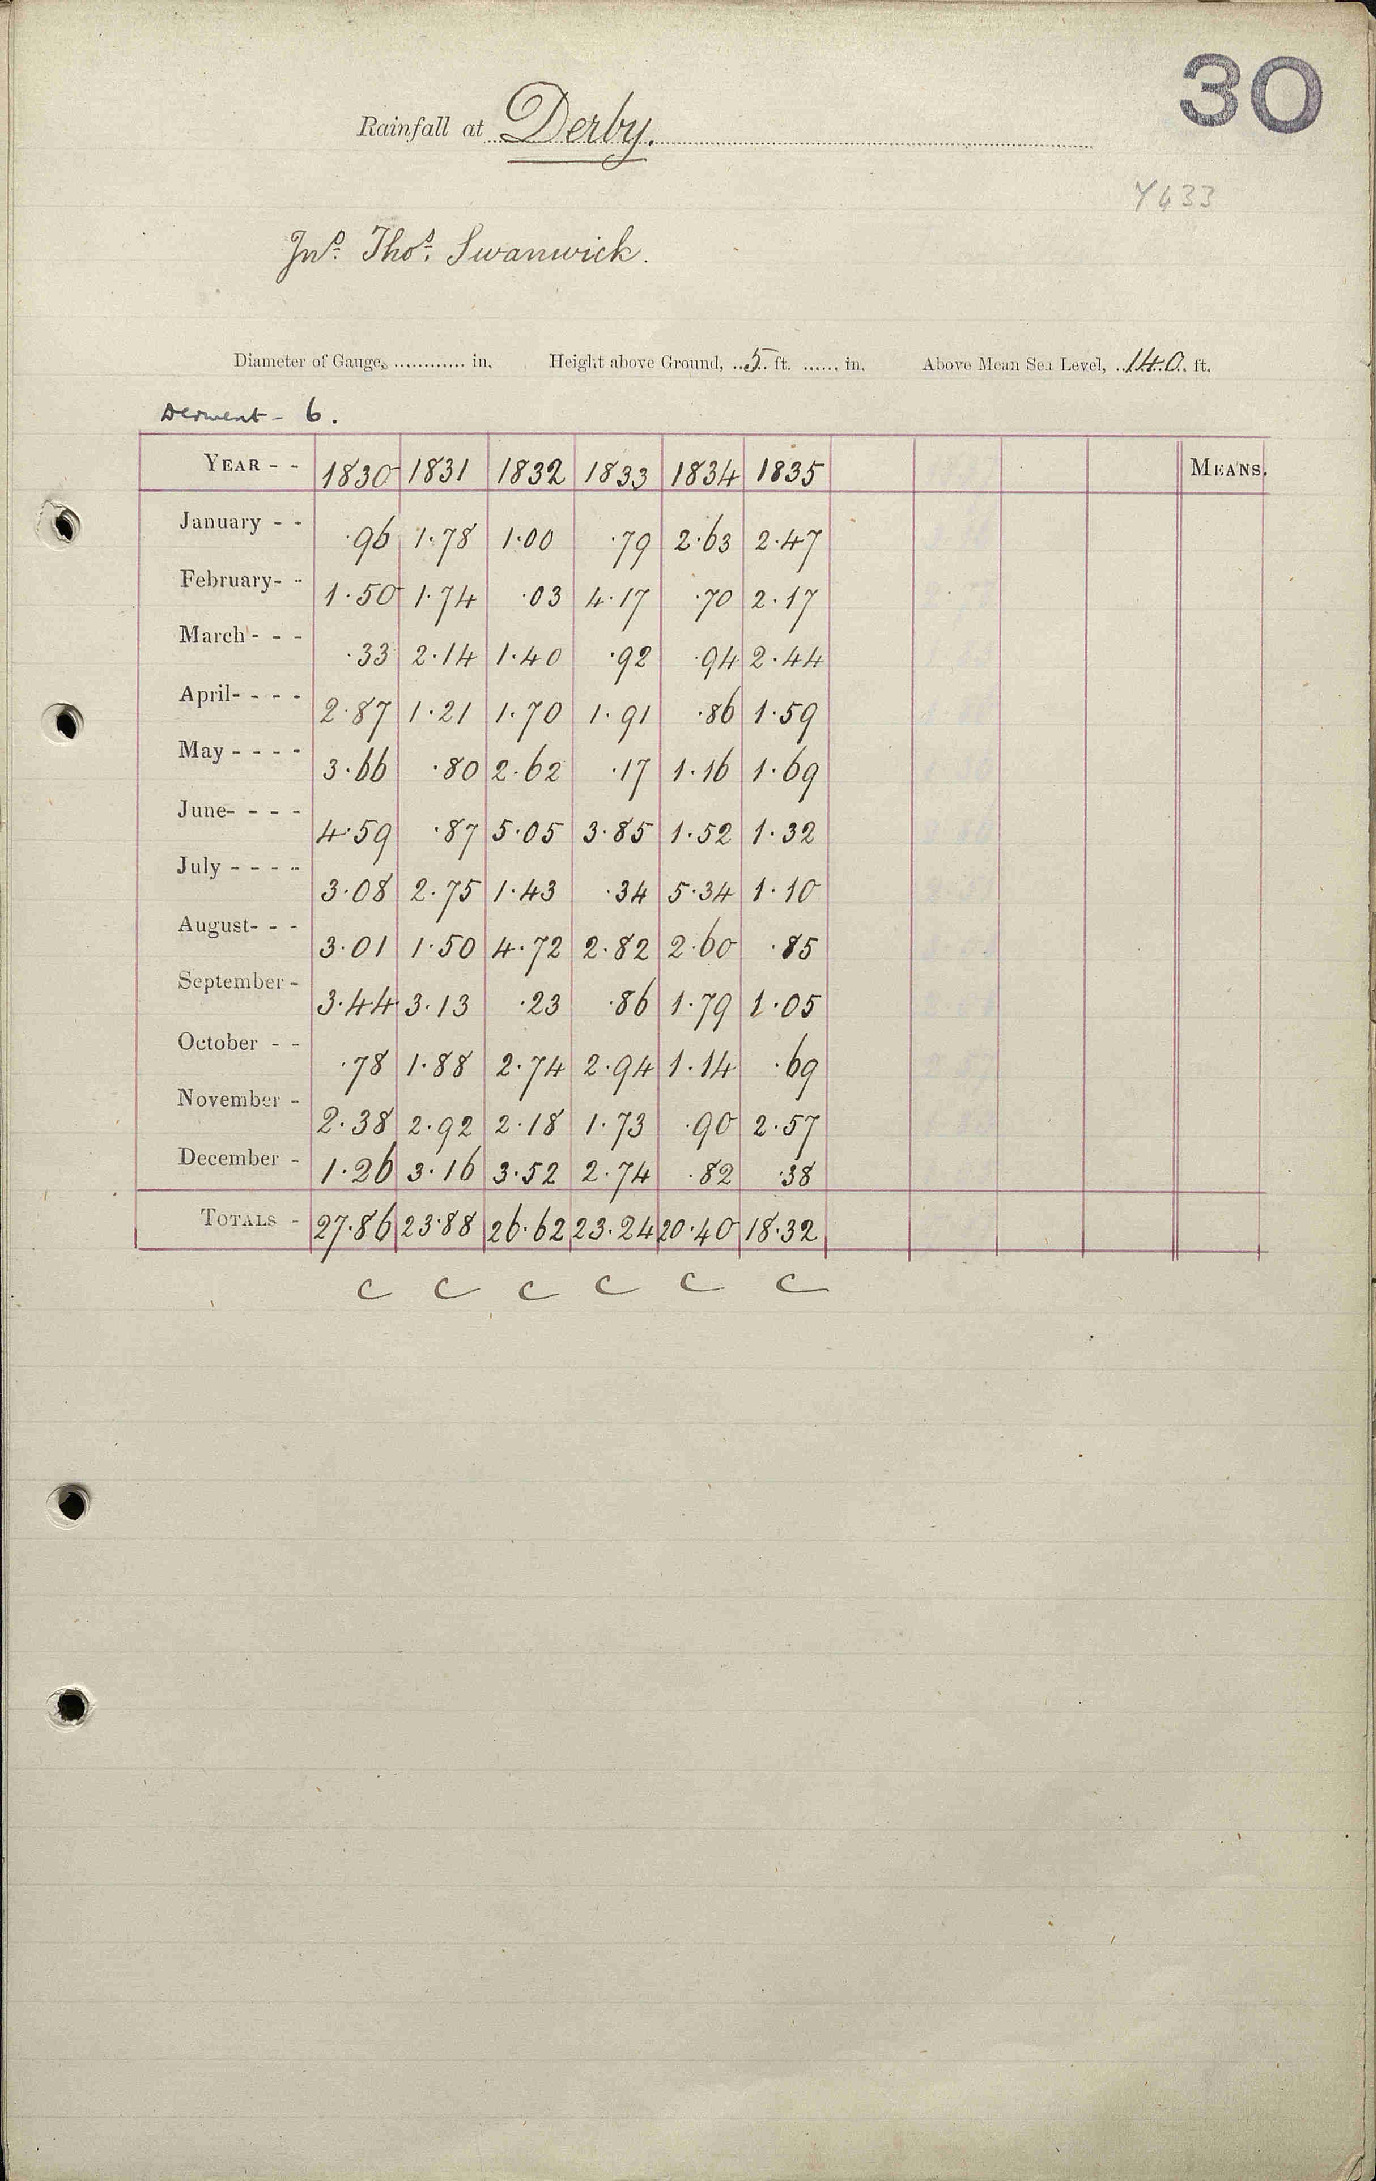 30
Rainfall at Derby.
Y433
Jno. Thos. Swanwick.
Diameter of Gauge, ............ in. Height above Ground, ..5.. ft. ...... in. Above Mean Sea Level, ..140.. ft.
Derwent - 6.
YEAR - - 1830 1831 1832 1833 1834 1835 MEANS.
January - - ·96 1·78 1·00 ·79 2·63 2·47
February - - 1·50 1·74 ·03 4·17 ·70 2·17
March - - - ·33 2·14 1·40 ·92 ·94 2·44
April - - - - 2·87 1·21 1·70 1·91 ·86 1·59
May - - - - 3·66 ·80 2·62 ·17 1·16 1·69
June - - - - 4·59 ·87 5·05 3·85 1·52 1·32
July - - - - 3·08 2·75 1·43 ·34 5·34 1·10
August - - - 3·01 1·50 4·72 2·82 2·60 ·85
September - 3·44 3·13 ·23 ·86 1·79 1·05
October - - ·78 1·88 2·74 2·94 1·14 ·69
November - 2·38 2·92 2·18 1·73 ·90 2·57
December - 1·26 3·16 3·52 2·74 ·82 ·38
TOTALS - 27·86 23·88 26·62 23·24 20·40 18·32
C C C C C C